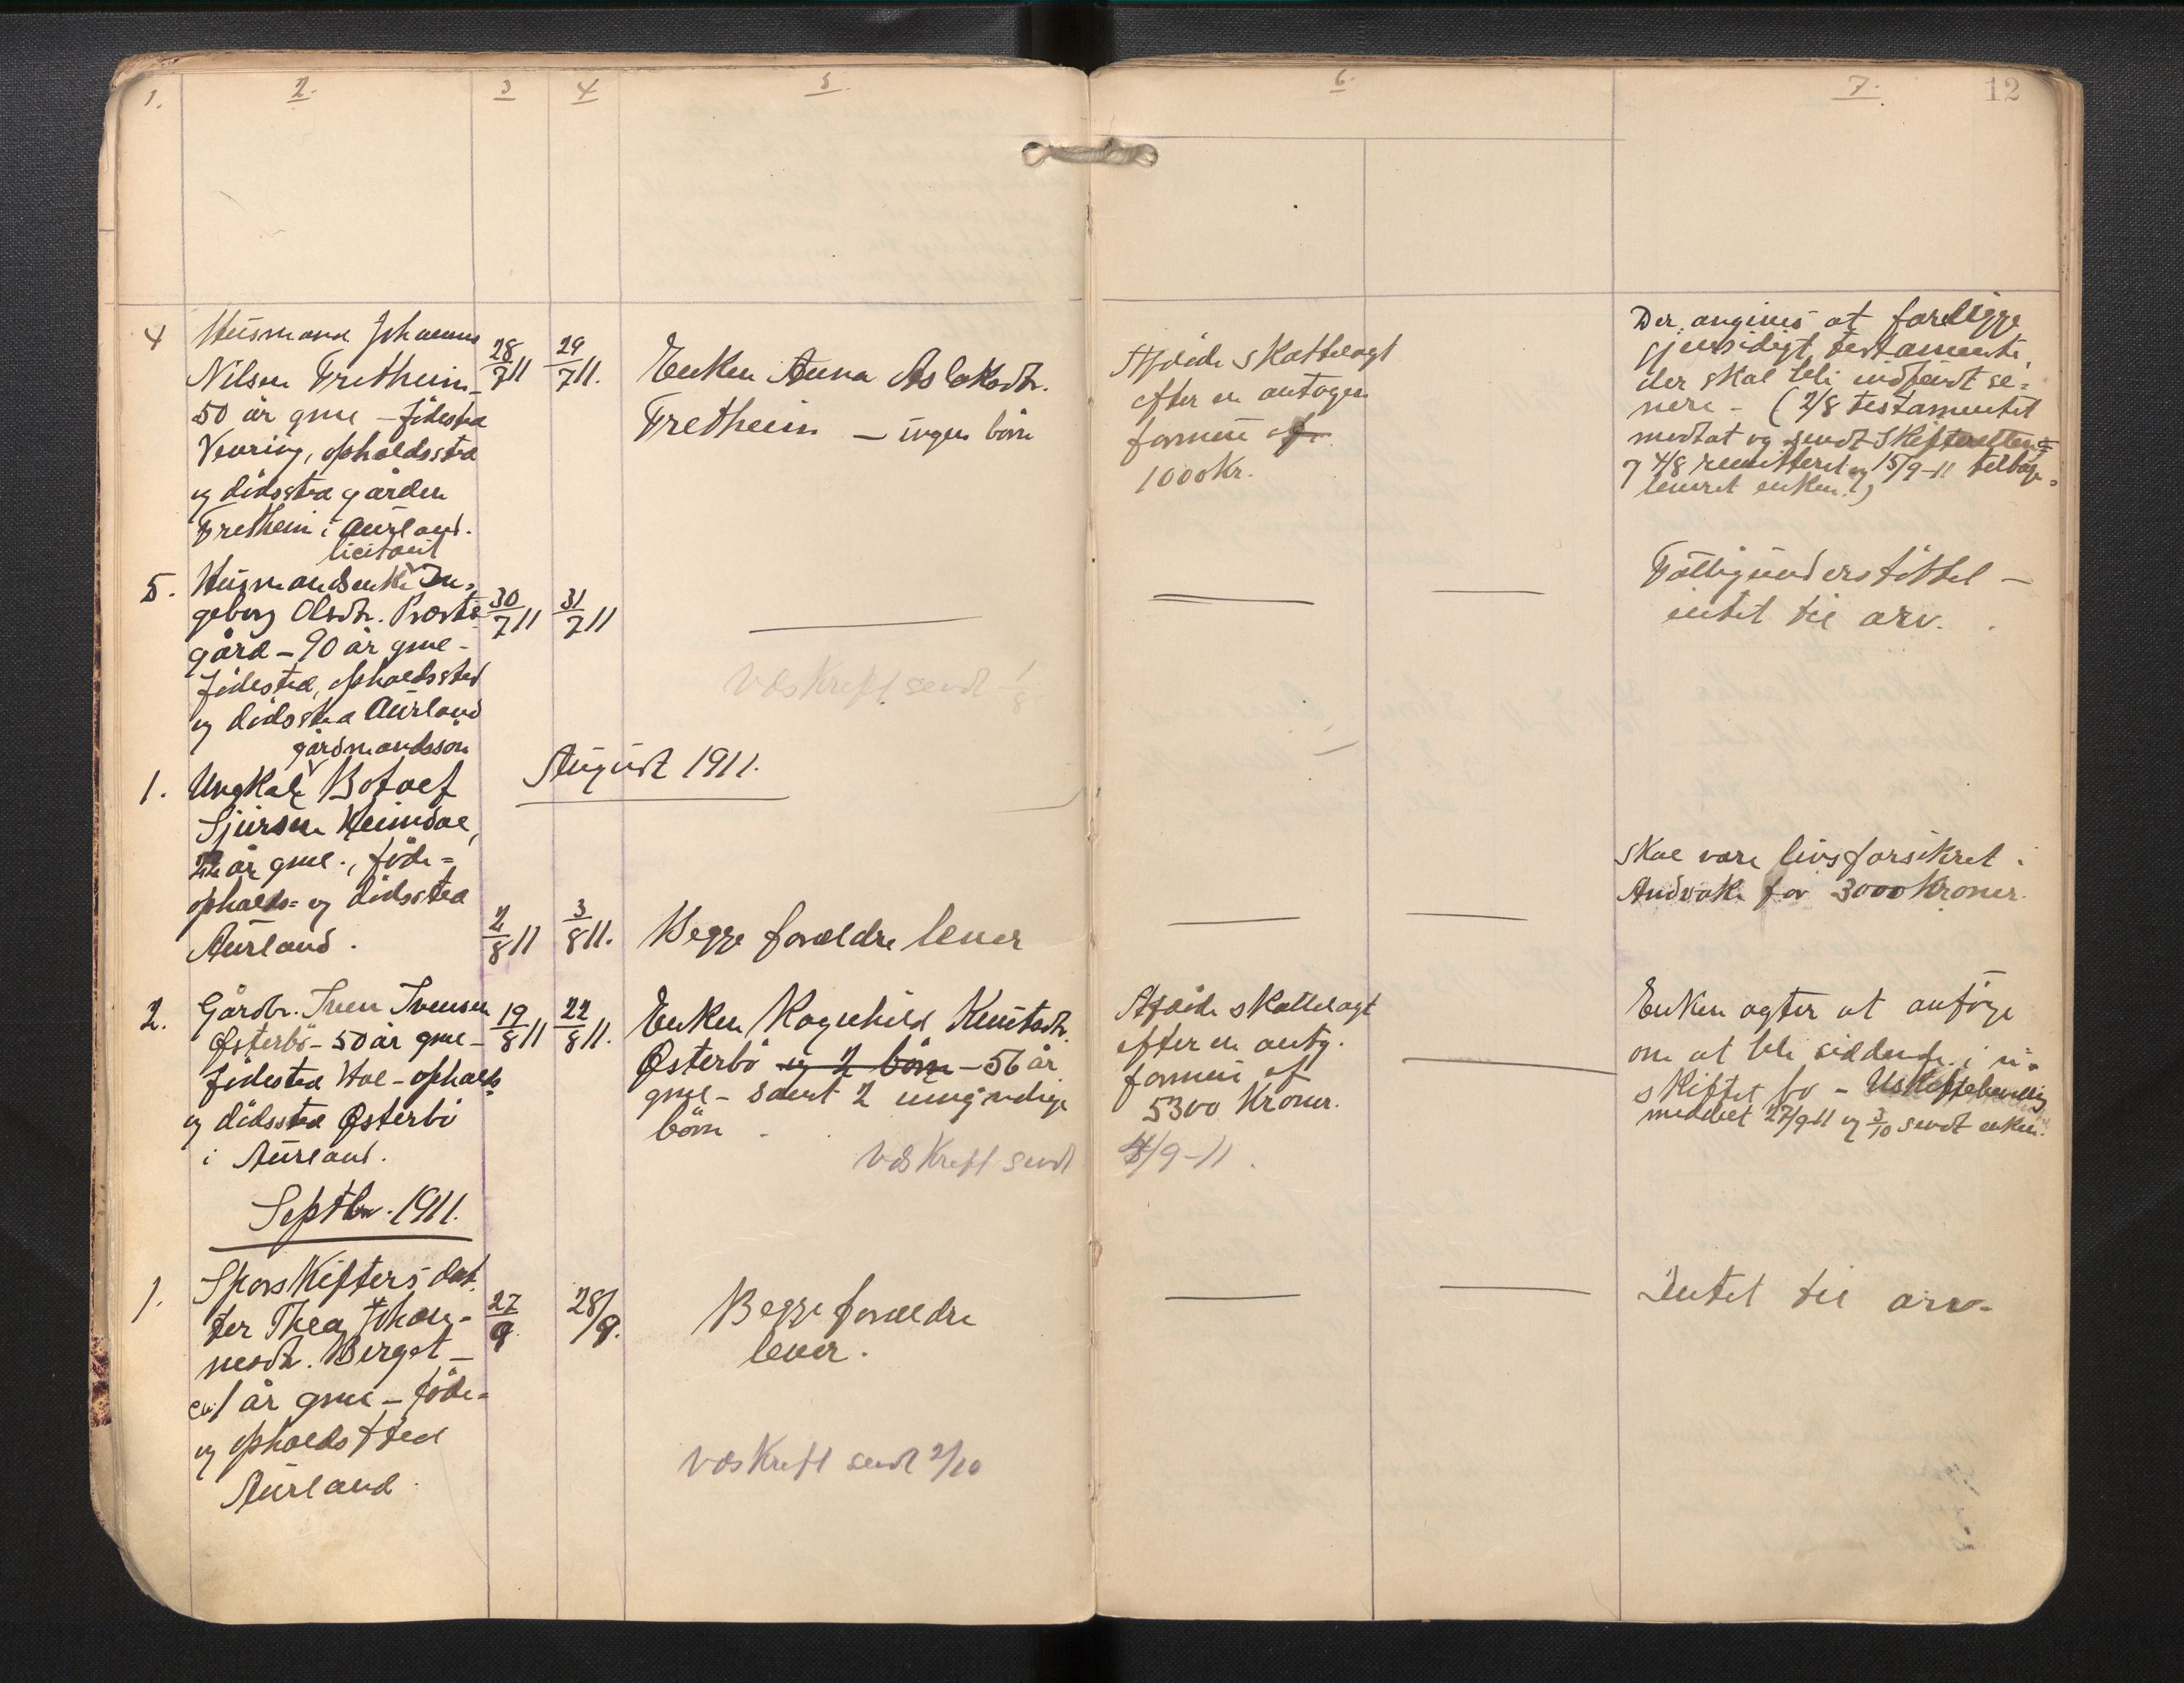 1.
2.
3
4
5
6.
7.
12
4
Husmand Johannes
Nilsen Fretheim -
50 år gml - fødested
opholdssted
og dødssted gården
Fretheim i Aurland.
28/7 11
29/7 11.
Enken Anna Aslaksdtr.
Fretheim - ingen børn
Afdøde skattelagt
efter en antagen
formue af
1000 Kr.
Der angives at foreligge
gjensidigt testamente,
der skal bli indsendt se=
nere - (2/8 testamentet
modtat og sendt Skifteretten =
7 4/8 remitteret og 15/9-11 tilbage=
leveret enken.)
licitant
5.
Husmandsenke In=
geborg Olsdtr. Præste
gård - 90 år gml -
fødested, opholdssted
og dødssted Aurland
30/7 11
31/7 11
Fattigunderstøttet -
intet til arv.
Vdskreft sendt 1/8
August 1911.
gårdmandssøn
1.
Ungkar Botolf
Sjursen Heimdal,
22 år gml., føde=
opholds= og dødssted
Aurland.
2/8 11
3/8 11.
Begge forældre lever
Skal være livsforsikret i
Andvake for 3000 Kroner.
2.
Gårdbr. Iven Ivensen
Østerbø - 50 år gml -
fødested Hol - opholds
og dødssted Østerbø
i Aurland.
19/8 11
22/8 11.
Enken Ragnhild Knutsdtr.
Østerbø og 2 børn - 56 år
gml - samt 2 umyndige
børn
Afdøde skattelagt
efter en antg.
formue af
5300 Kroner.
Enken agter at ansøge
om at bli siddende i u=
skiftet bo - Uskiftebevilling
meddelt 27/9-11 og 3/10 sendt enken.
Vdskreft sendt 4/9-11.
Septbr. 1911.
1.
Skorskifters dat
ter Thea Johan-
nesdtr. Berget -
1 år gml - føde=
og opholdssted
Aurland
27/9.
28/9.
Begge forældre
lever.
Intet til arv.
Vdskreft sendt 2/10